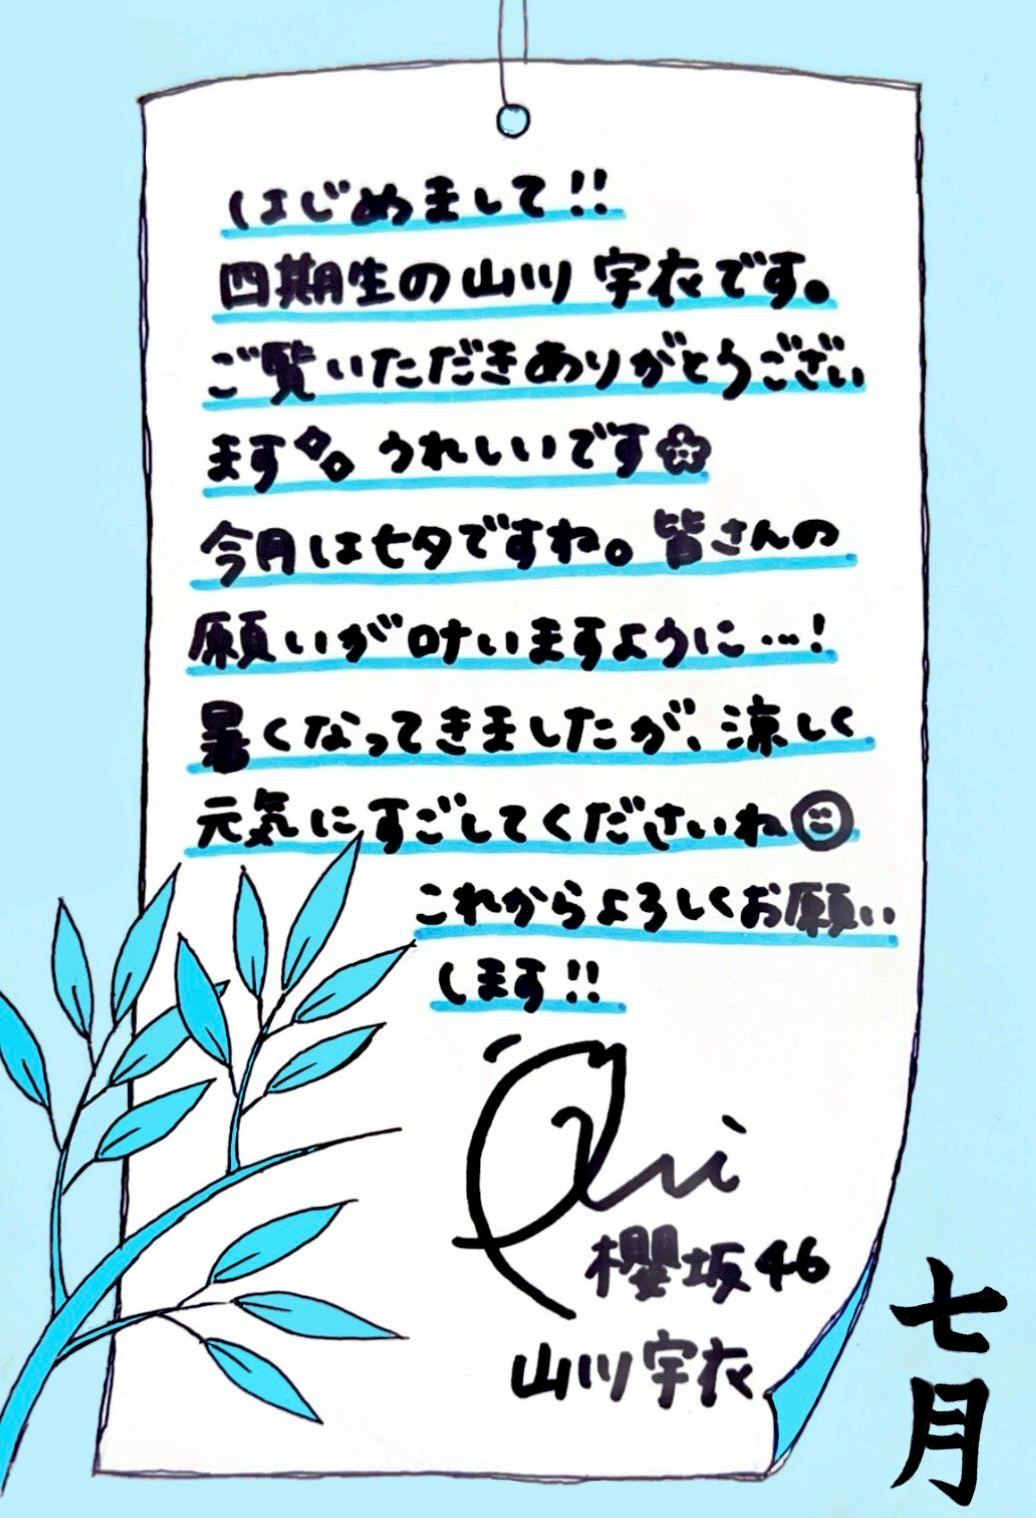 はじめまして!!
四期生の山川 宇衣です。
ご覧いただきありがとうござい
ます。うれしいです
今月は七夕ですね。皆さんの
願いが叶いますように…!
暑くなってきましたが、涼しく
元気にすごしてくださいね
これからよろしくお願い
します!!
Ui
櫻坂46
山川宇衣
七月